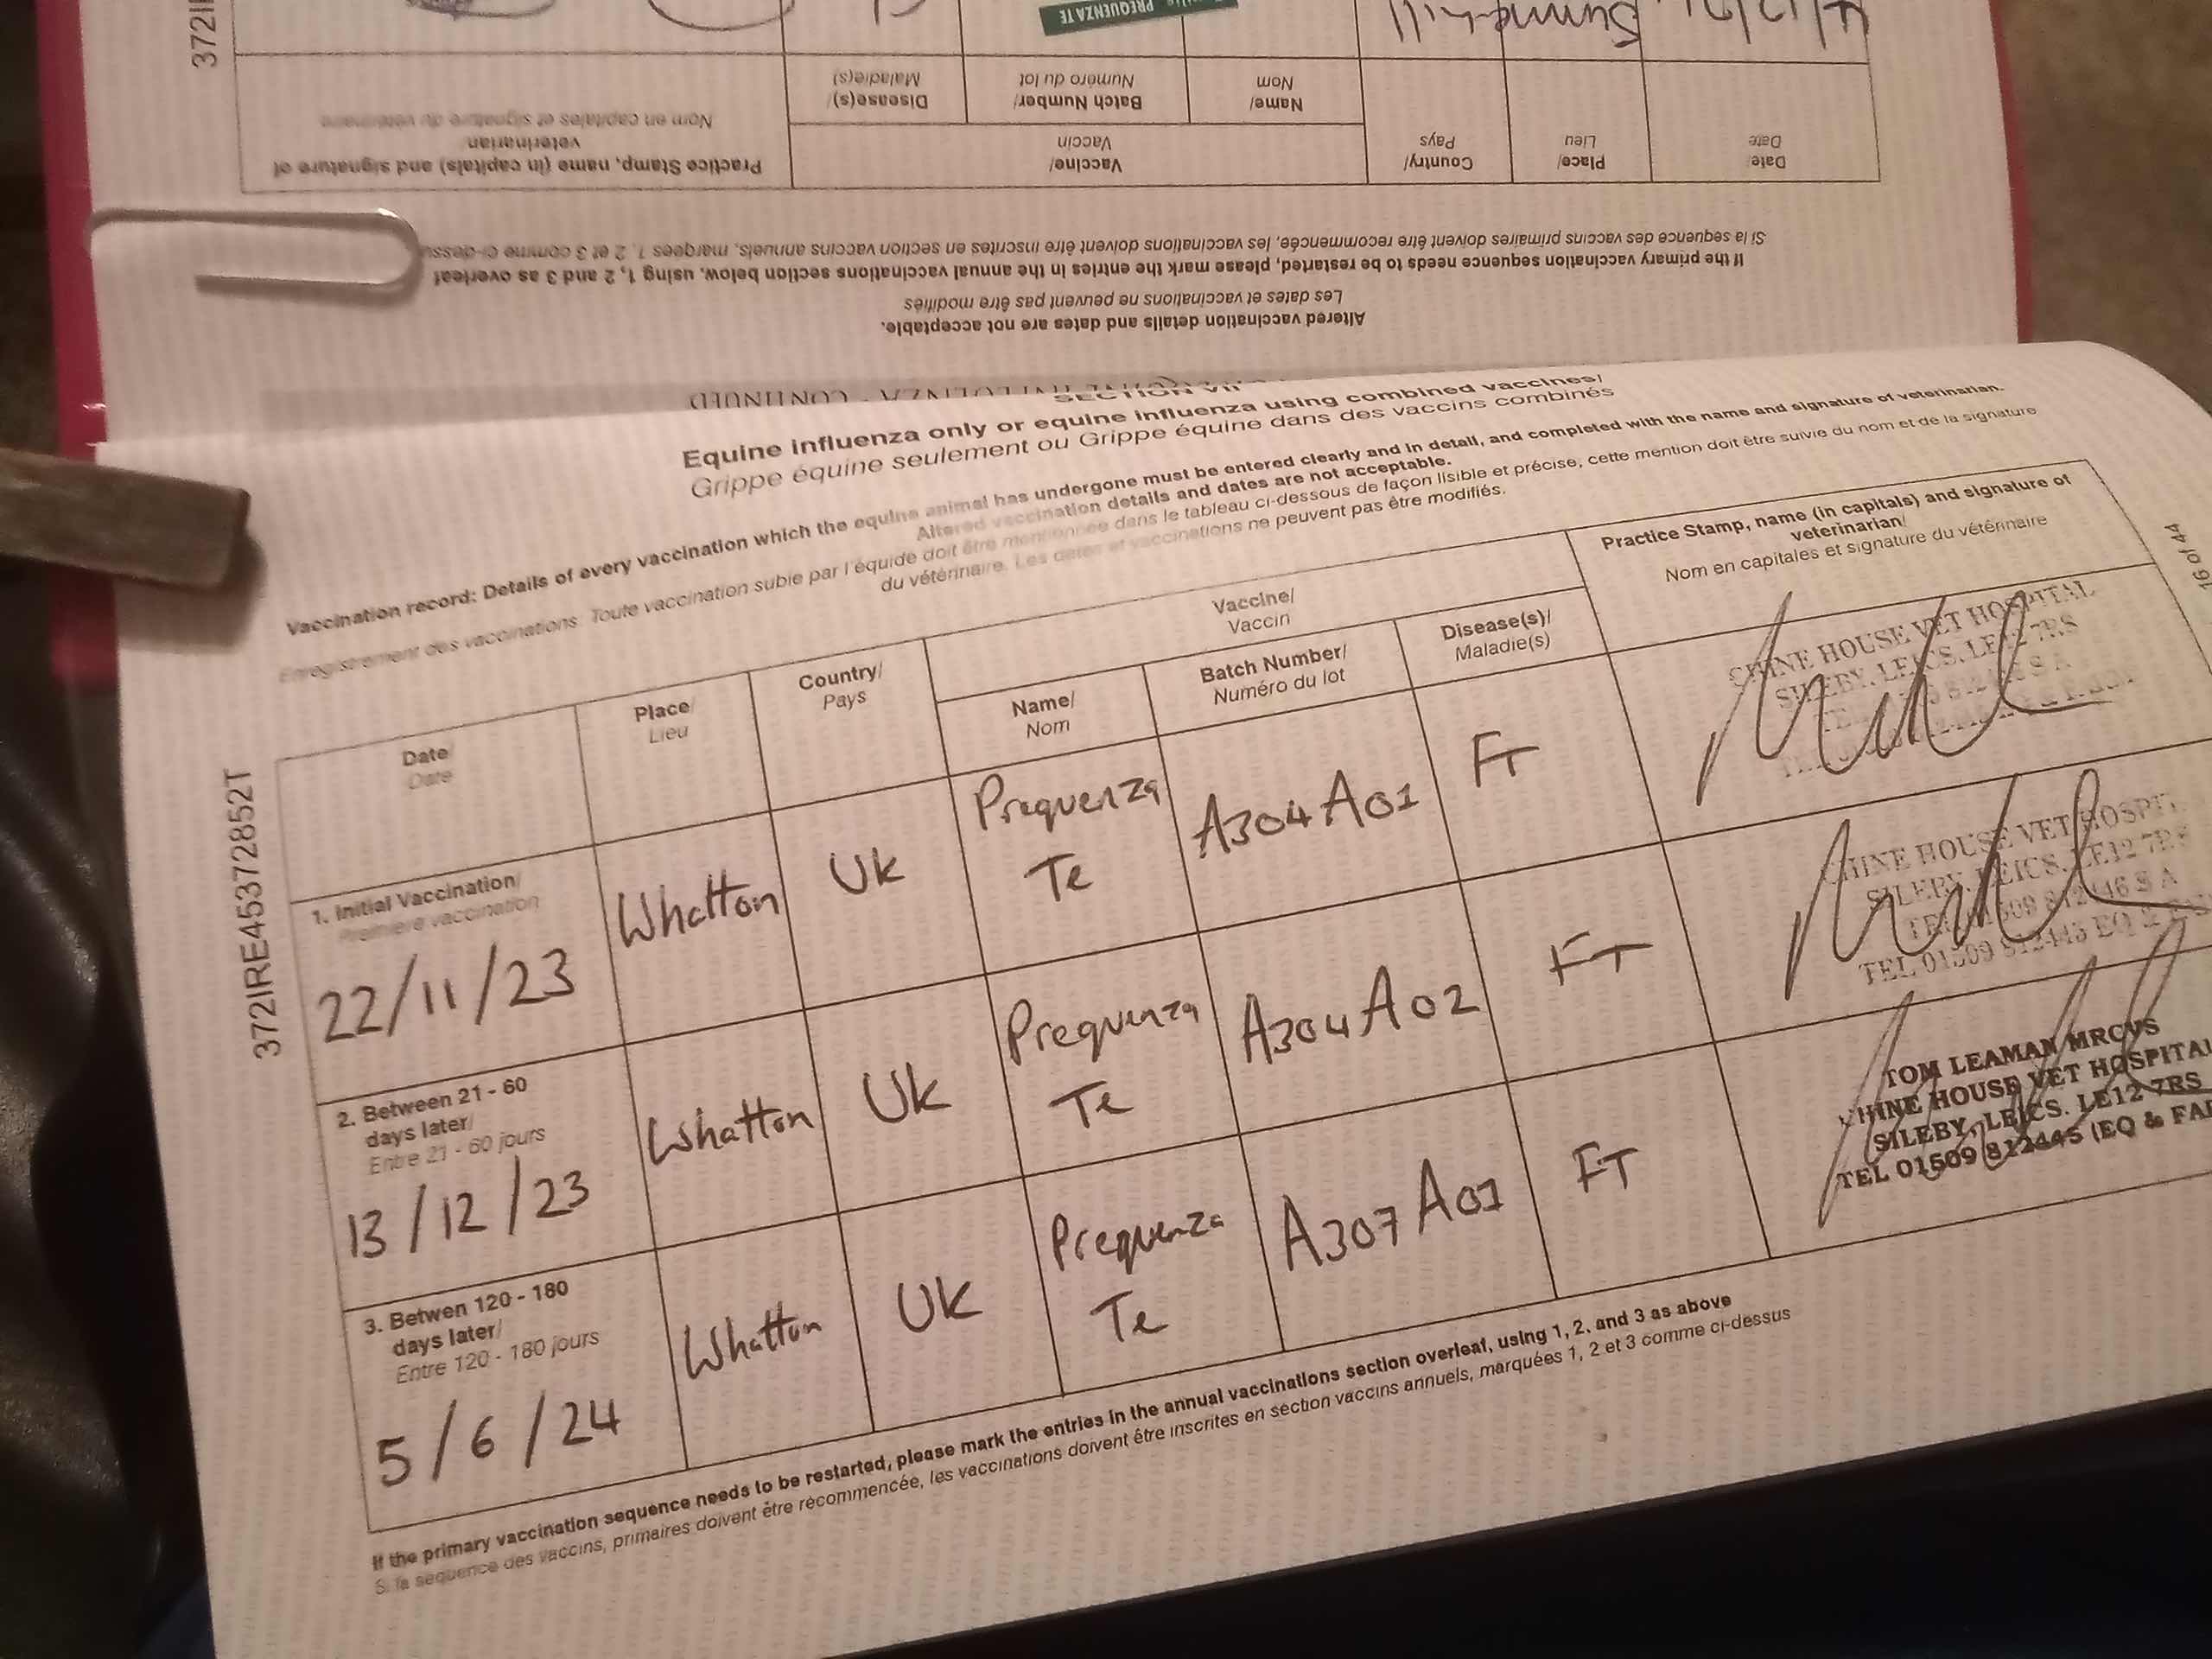 372IRE453728527T
SECTION VII
Equine influenza only or equine influenza using combined vaccines/
Grippe équine seulement ou Grippe équine dans des vaccins combinés
Vaccination record: Details of every vaccination which the equine animal has undergone must be entered clearly and in detail, and completed with the name and signature of veterinarian.
Altered vaccination details and dates are not acceptable.
Enregistrement des vaccinations: Toute vaccination subie par l'équidé doit être mentionnée dans le tableau ci-dessous de façon lisible et précise, cette mention doit être suivie du nom et de la signature
du vétérinaire. Les dates et vaccinations ne peuvent pas être modifiés.
Date/
Date
Place/
Lieu
Country/
Pays
Vaccine/
Vaccin
Name/
Nom
Batch Number/
Numéro du lot
Disease(s)/
Maladie(s)
Practice Stamp, name (in capitals) and signature of
veterinarian/
Nom en capitales et signature du vétérinaire
1. Initial Vaccination/
Première vaccination
22/11/23
Whatton
UK
Prequenza
Te
A304A01
FT
HOUSE VET HOSPITAL
SILEBY, LEICS. LE12 7RS
2. Between 21 - 60
days later/
Entre 21 - 60 jours
13/12/23
Whatton
UK
Prequenza
Te
A304A02
FT
HINE HOUSE VET HOSPIT
SILEBY, LEICS. LE12 7RS
TEL 01509 812446 S A
TEL 01509 812445 EQ &
3. Betwen 120 - 180
days later/
Entre 120 - 180 jours
5/6/24
Whatton
UK
Prequenza
Te
A307A01
FT
TOM LEAMAN MRCVS
HINE HOUSE VET HOSPITAL
SILEBY, LEICS. LE12 7RS
TEL 01509 812445 (EQ & FA
If the primary vaccination sequence needs to be restarted, please mark the entries in the annual vaccinations section overleaf, using 1, 2, and 3 as above
Si la séquence des vaccins, primaires doivent être recommencée, les vaccinations doivent être inscrites en section vaccins annuels, marquées 1, 2 et 3 comme ci-dessus
16 of 44
CONTINUED
Altered vaccination details and dates are not acceptable.
Les dates et vaccinations ne peuvent pas être modifiés
If the primary vaccination sequence needs to be restarted, please mark the entries in the annual vaccinations section below, using 1, 2 and 3 as overleaf
Si la séquence des vaccins primaires doivent être recommencée, les vaccinations doivent être inscrites en section vaccins annuels, marquées 1, 2 et 3 comme ci-dessu
Date/
Date
Place/
Lieu
Country/
Pays
Vaccine/
Vaccin
Name/
Nom
Batch Number/
Numéro du lot
Disease(s)/
Maladie(s)
Practice Stamp, name (in capitals) and signature of
veterinarian/
Nom en capitales et signature du vétérinaire
PREQUENZA TE
372I